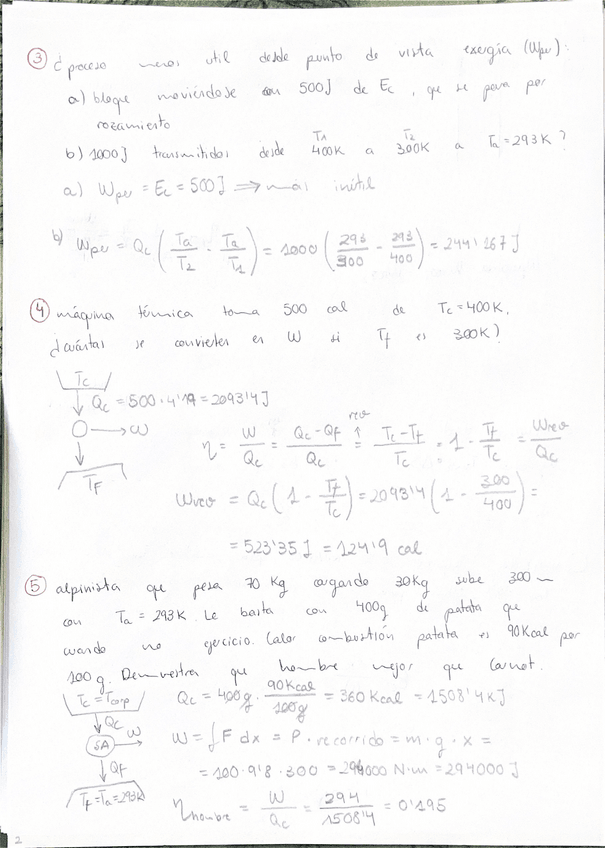 ③ ¿proceso menos util desde punto de vista exergía (Wper):
a) bloque moviéndose con 500J de Ec, que se para por
rozamiento
b) 1000J transmitidos desde T1 400K a T2 300K a Ta = 293K?
a) Wper = Ec = 500J ⟹ más inútil
b) Wper = Qc (Ta/T2 - Ta/T1) = 1000 (293/300 - 293/400) = 244'167J
④ máquina térmica toma 500 cal de Tc = 400K.
¿cuántas se convierten en W si Tf es 300K?
Tc
Qc = 500·4'19 = 2093'4J
→ W
TF
η = W/Qc = (Qc-QF)/Qc = rev (Tc-Tf)/Tc = 1 - Tf/Tc = Wrev/Qc
Wrev = Qc (1 - Tf/Tc) = 2093'4 (1 - 300/400) =
= 523'35J = 124'9 cal
⑤ alpinista que pesa 70 Kg cargando 30Kg sube 300m
con Ta = 293K. Le basta con 400g de patata que
cuando no ejercicio. Calor combustión patata es 90Kcal por
100g. Demuestra que hombre mejor que Carnot.
Tc = Tcorp
Qc
W
QF
TF = Ta = 293K
Qc = 400g · 90Kcal/100g = 360 Kcal = 1508'4 KJ
W = ∫F dx = P · recorrido = m·g·x =
= 100·9'8·300 = 294000 N·m = 294000J
ηhombre = W/Qc = 294/1508'4 = 0'195
2